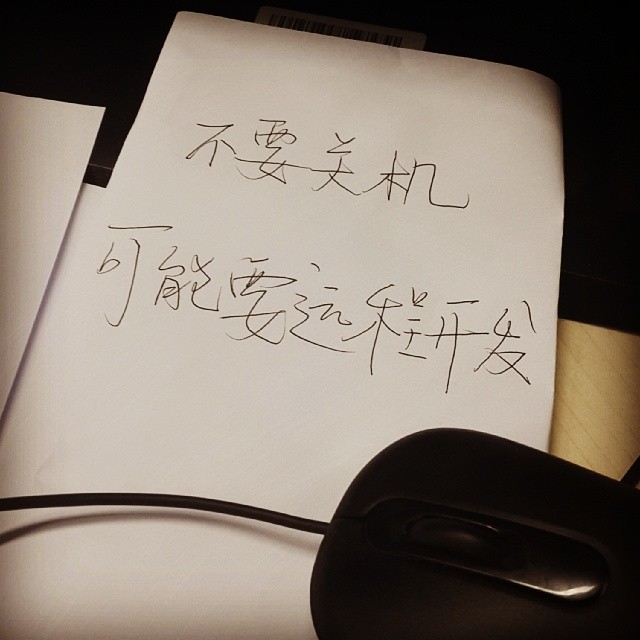 不要关机
可能要远程开发